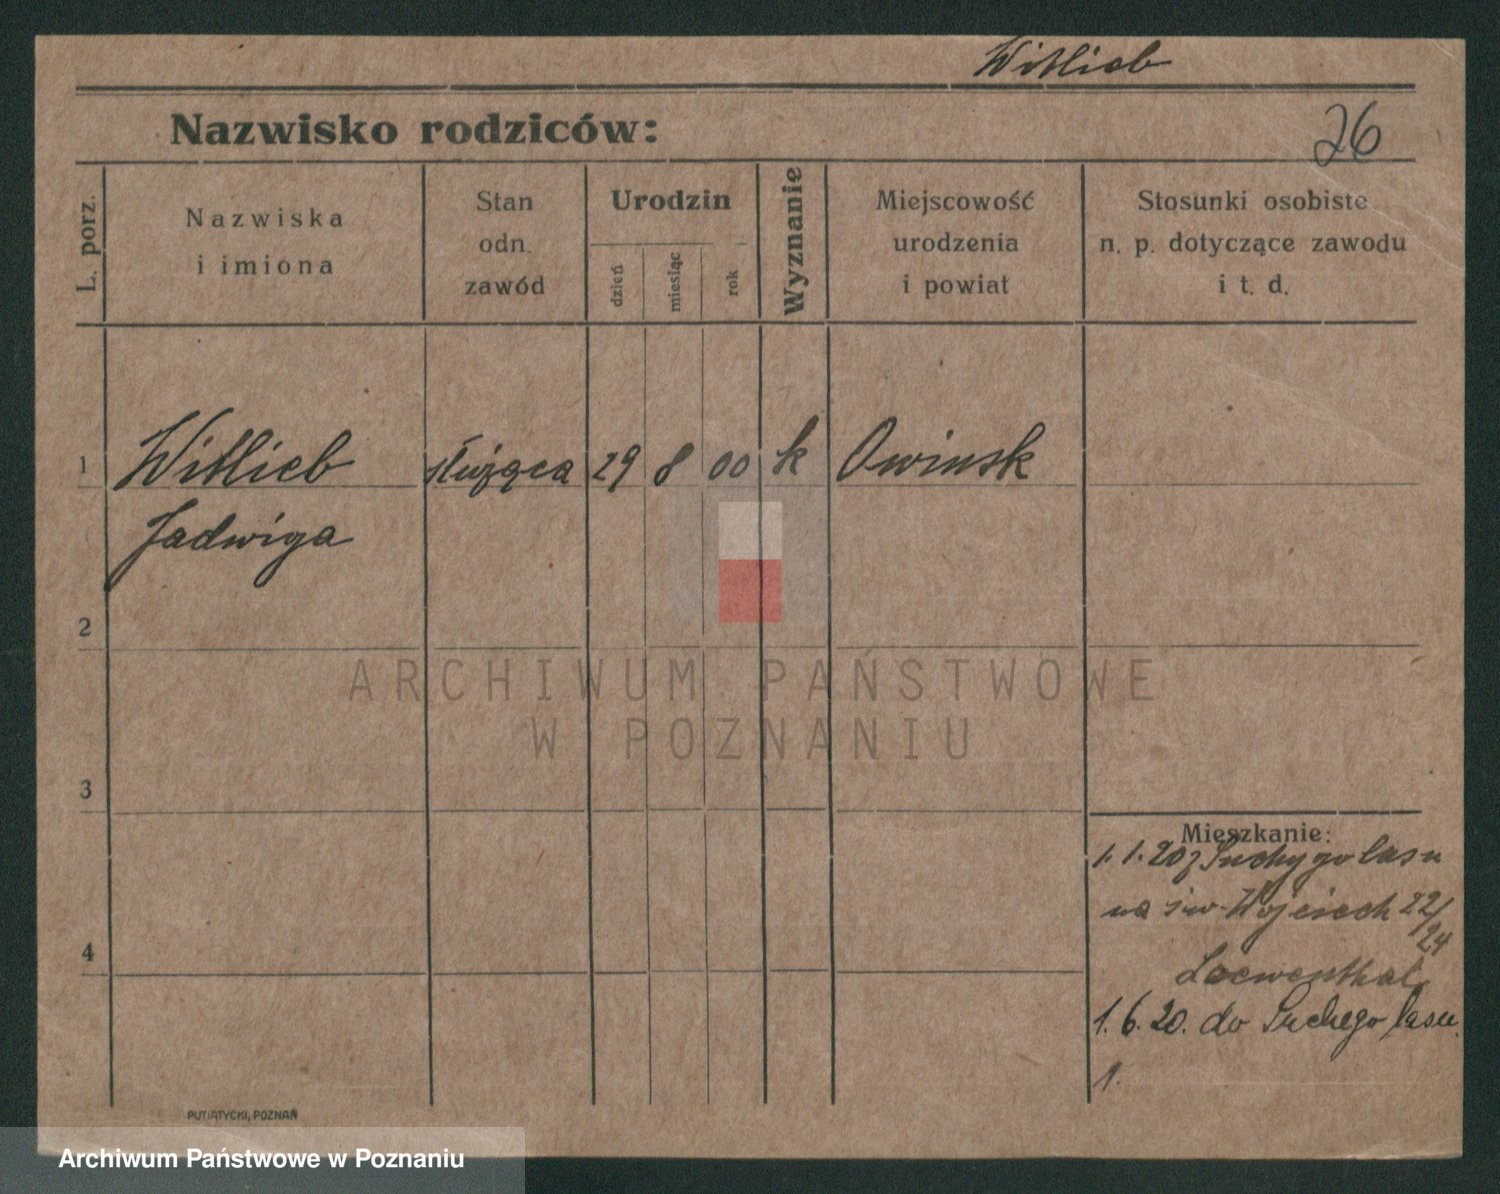 Witlieb
Nazwisko rodziców:
26
L. porz.
Nazwiska
i imiona
Stan
odn.
zawód
Urodzin
dzień
miesiąc
rok
Wyznanie
Miejscowość
urodzenia
i powiat
Stosunki osobiste
n. p. dotyczące zawodu
i t. d.
1 Witlieb służąca 29 8 00 k Owinsk
Jadwiga
2
ARCHIWUM PAŃSTWOWE
W POZNANIU
3
Mieszkanie:
1. 1. 20 z Suchygo lasu
na św. Wojciech 22/
24
4
Loewenthal
1. 6. 20. do Suchego lasu.
1.
PUTIATYCKI, POZNAŃ
Archiwum Państwowe w Poznaniu